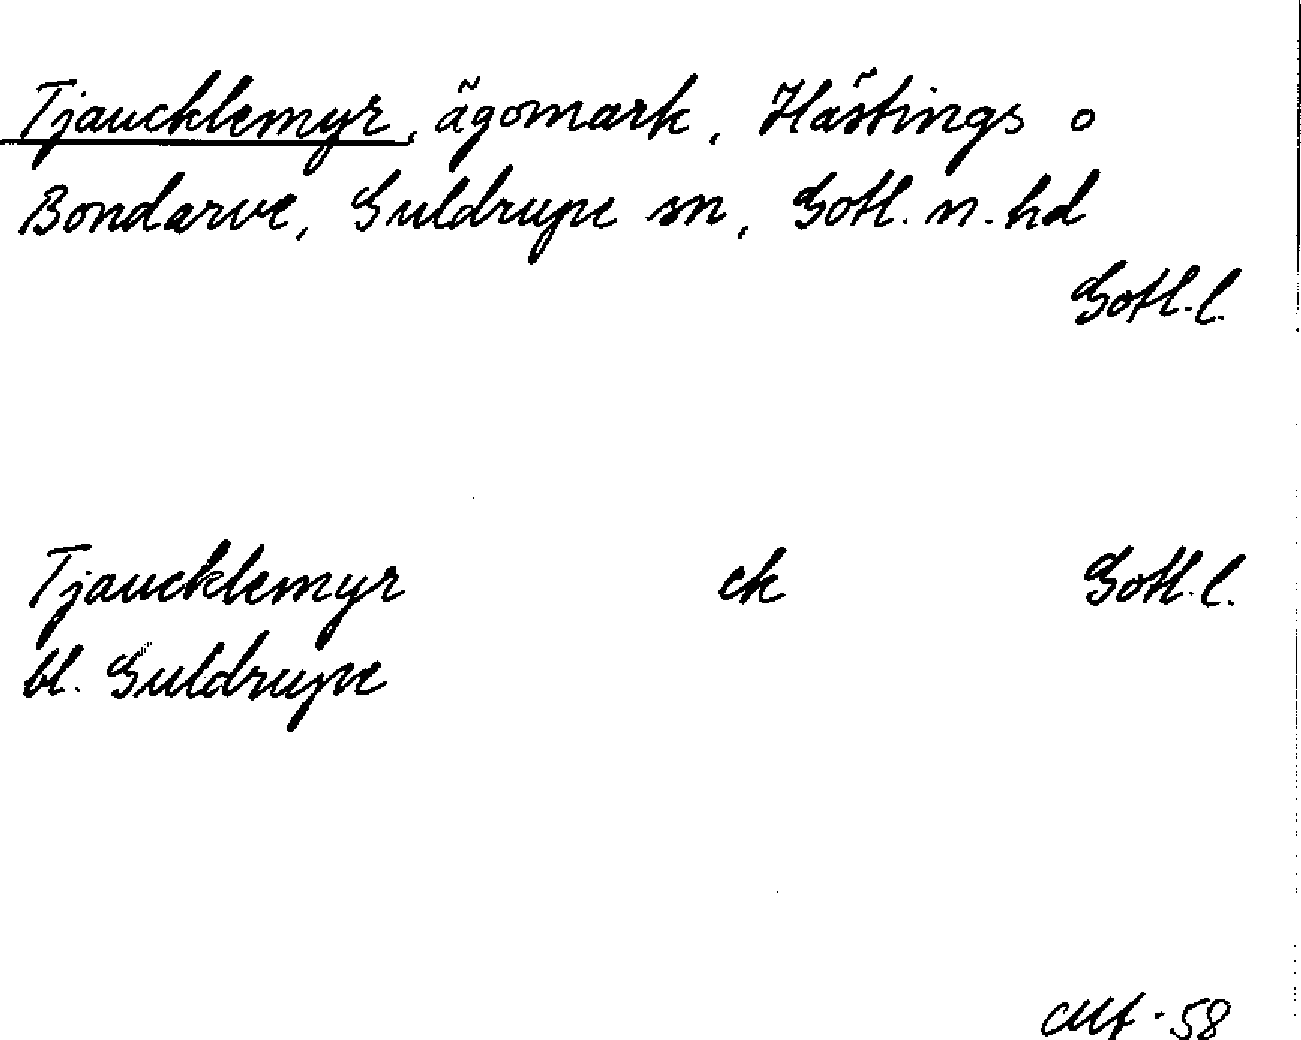 Tjaucklemyr, ägomark, Hästings o
Bondarve, Guldrupe sn, Gotl. n. hd
Gotl. l.
Tjaucklemyr ek Gotl. l.
bl. Guldrupe
-58